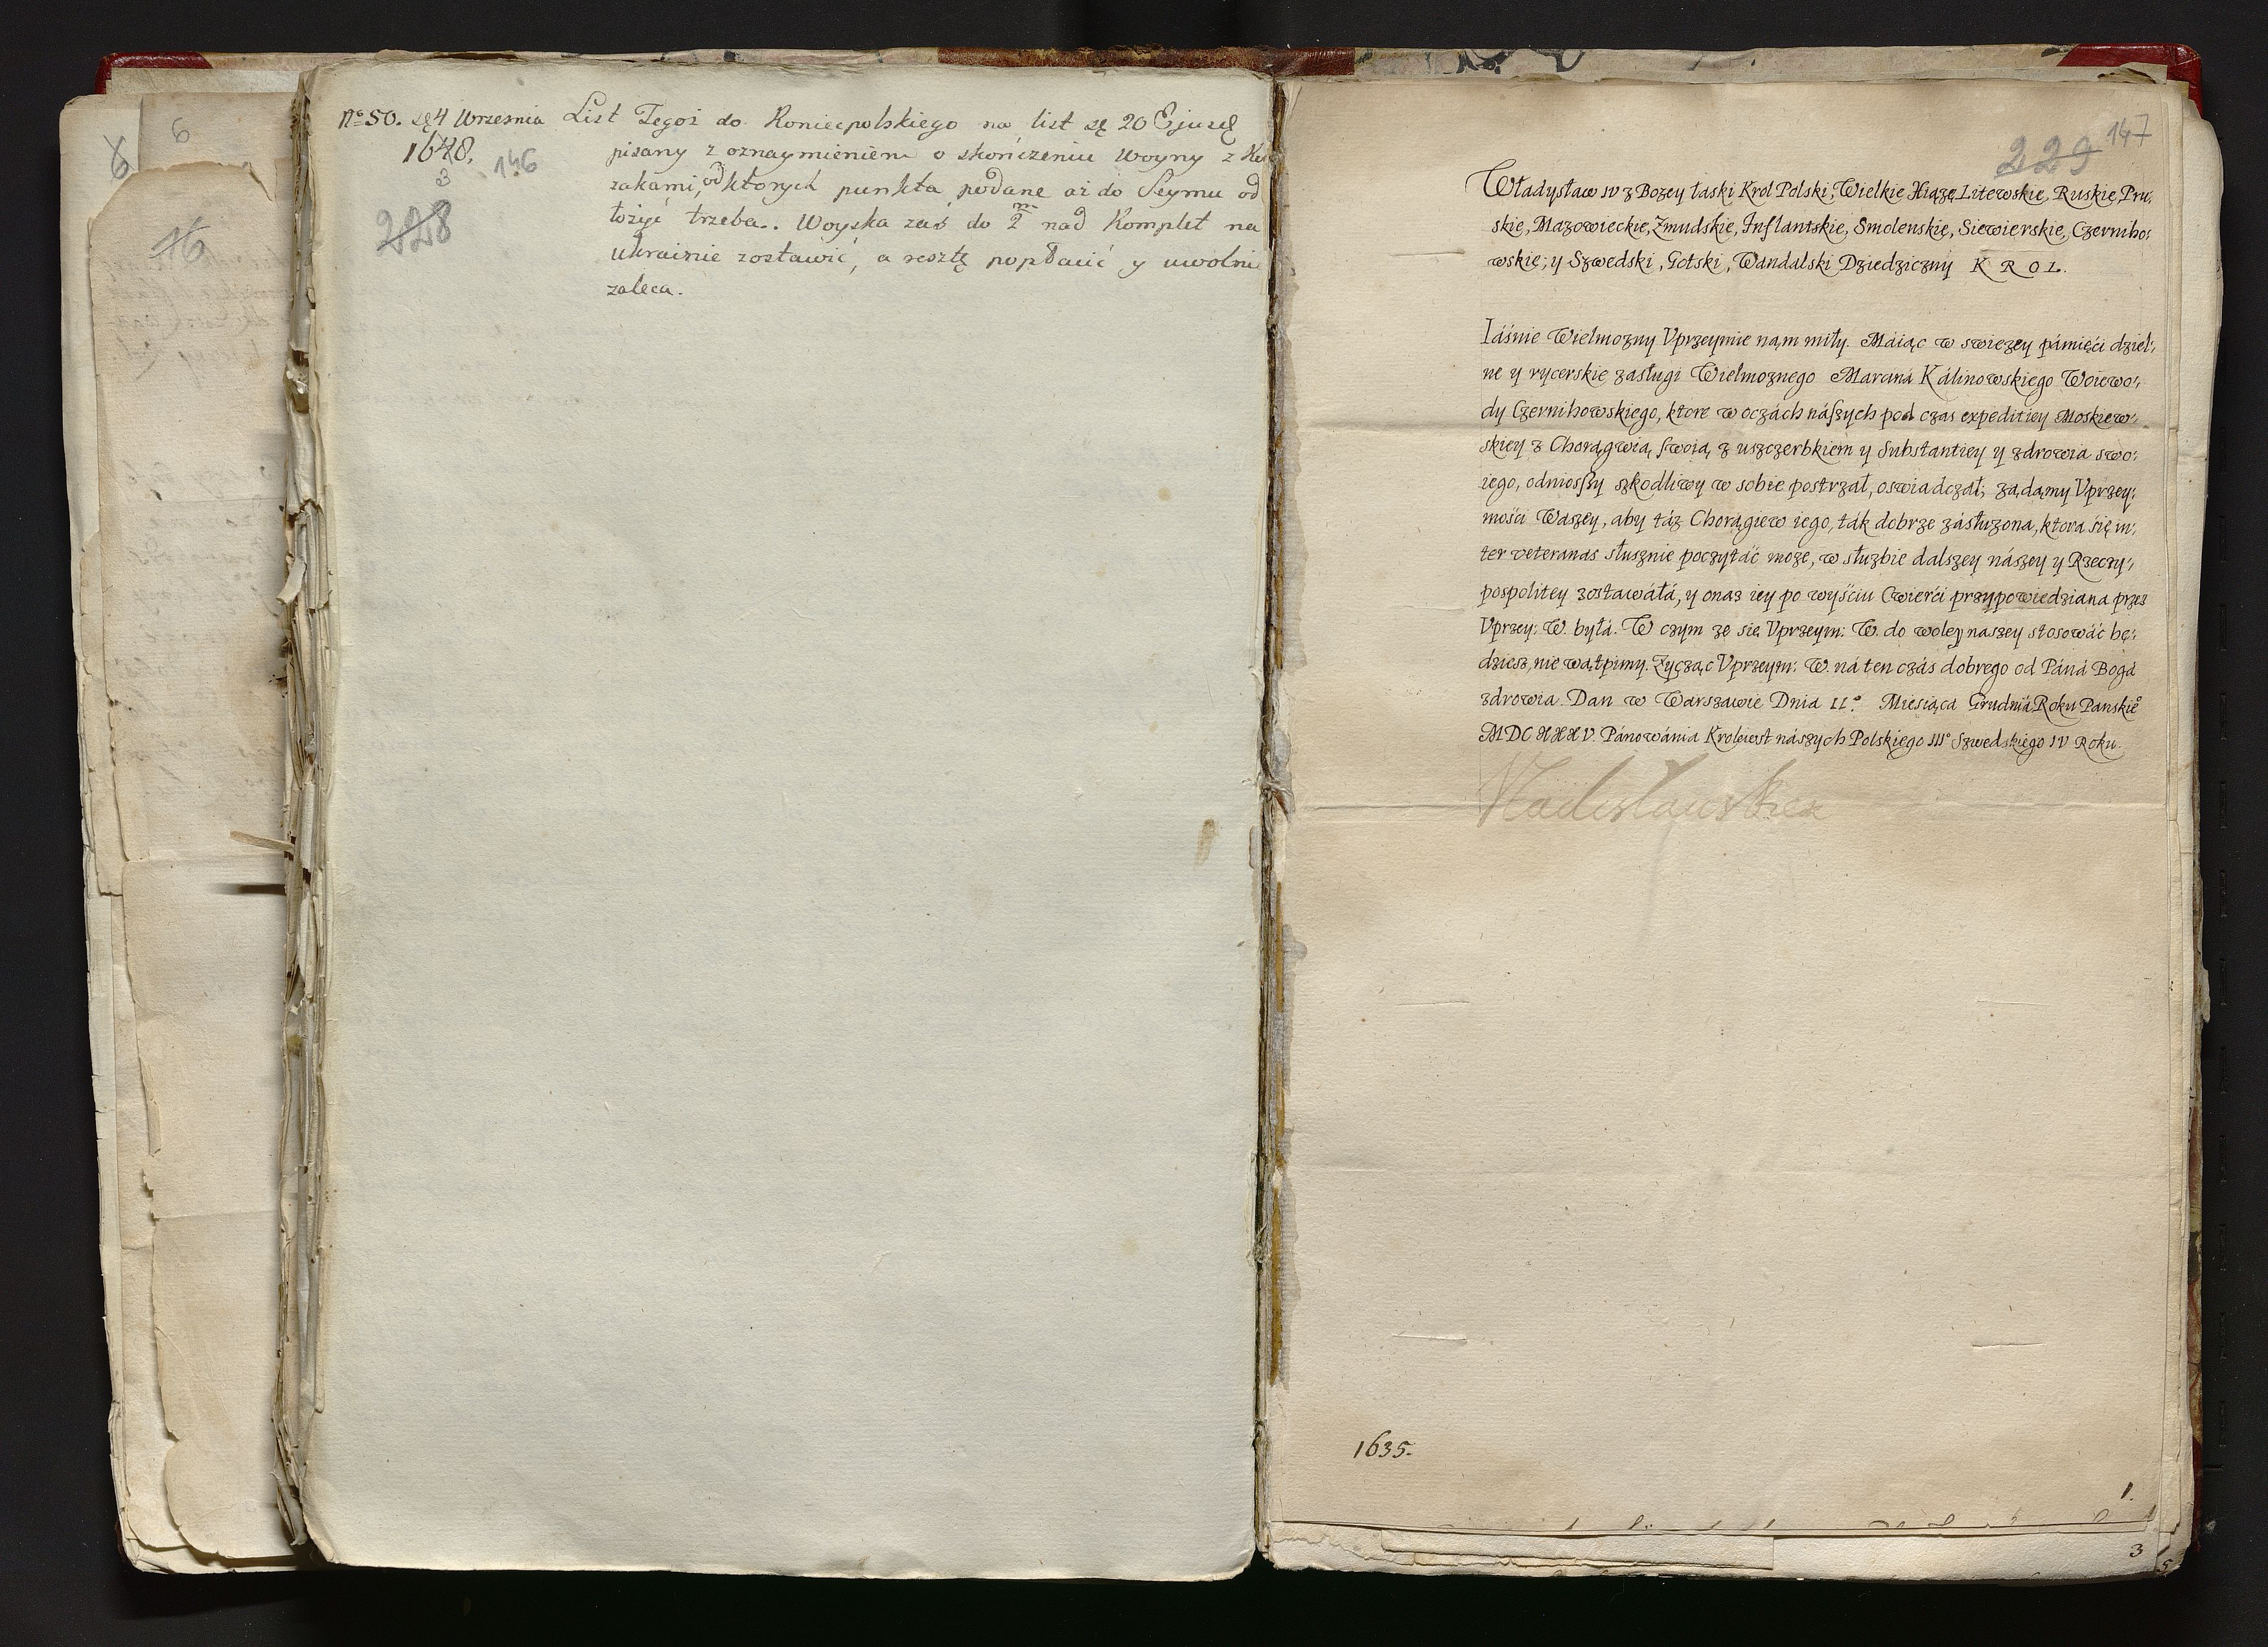 No 50. 24 Września List Tegoż do Koniecpolskiego na list 20 Ejusd
1640.
3
146
228
pisany z oznaymieniem o skończeniu woyny z Ko
zakami, od ktorych punkta podane aż do Seymu od
łożyć trzeba. Woyska zaś do 2 m nad Komplet na
ukrainie zostawić, a resztę popłacić y uwolni
zaleca.
6
6
16
229 147
Władysław IV z Bozey łaski Krol Polski, Wielkie Xiąze Litewskie, Ruskie, Pru:
skie, Mazowieckie, Zmudskie, Inflantskie, Smolenskie, Siewierskie, Czerniho:
wskie; y Szwedski, Gotski, Wandalski Dziedziczny KROL.
Iáśnie Wielmozny Vprzeymie nąm miły. Máiąc w swiezey pámięci dziel:
ne y rycerskie zasługi Wielmoznego Marcina Kálinowskiego Woiewo:
dy Czernihowskiego, ktore w oczách nászych pod czas expeditiey Moskiew:
skiey z Chorągwią swoią z uszczerbkiem y Substantiey y zdrowia swo:
iego, odniosszy szkodliwy w sobie postrzał, oswiadczał; ządamy Vprzey:
mości Waszey, aby táz Chorągiew iego, ták dobrze zásłuzona, ktora się in:
ter veteranas słusznie poczytáć moze, w słuzbie dalszey nászey y Rzeczy:
pospolitey zostawáłá, y onaz iey po wyściu Cwierći przypowiedziana przez
Vprzey: W. byłá. W czym ze się Vprzeym: W. do woley naszey stosowáć bę:
dziesz, nie wątpimy. Zycząc Vprzeym: W. ná ten czás dobrego od Páná Bogá
zdrowia. Dan w Warszawie Dnia II.° Miesiąca Grudniá Roku Panskie°
MDCXXXV. Pánowánia Krolewst nászych Polskiego III° Szwedskiego IV Roku.
Vladislaus Rex
1635.
1.
3
5